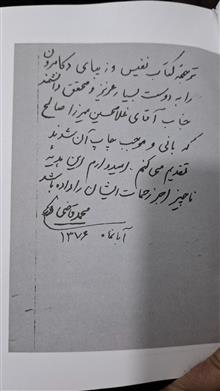 ترجمهٔ کتاب نفیس و زیبای دکامرون
را به دوست بسیار عزیز و محقق دانشمند
جناب آقای غلامحسین میرزا صالح
که بانی و موجب چاپ آن شدند
تقدیم می‌کنم. امیدوارم این هدیه
ناچیز اجر زحمات ایشان را داده باشد
محمد قاضی
آبانماه ۱۳۷۶